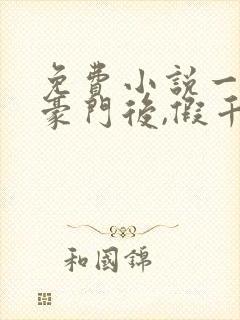 免費小説一
豪門後,假千
和國錦